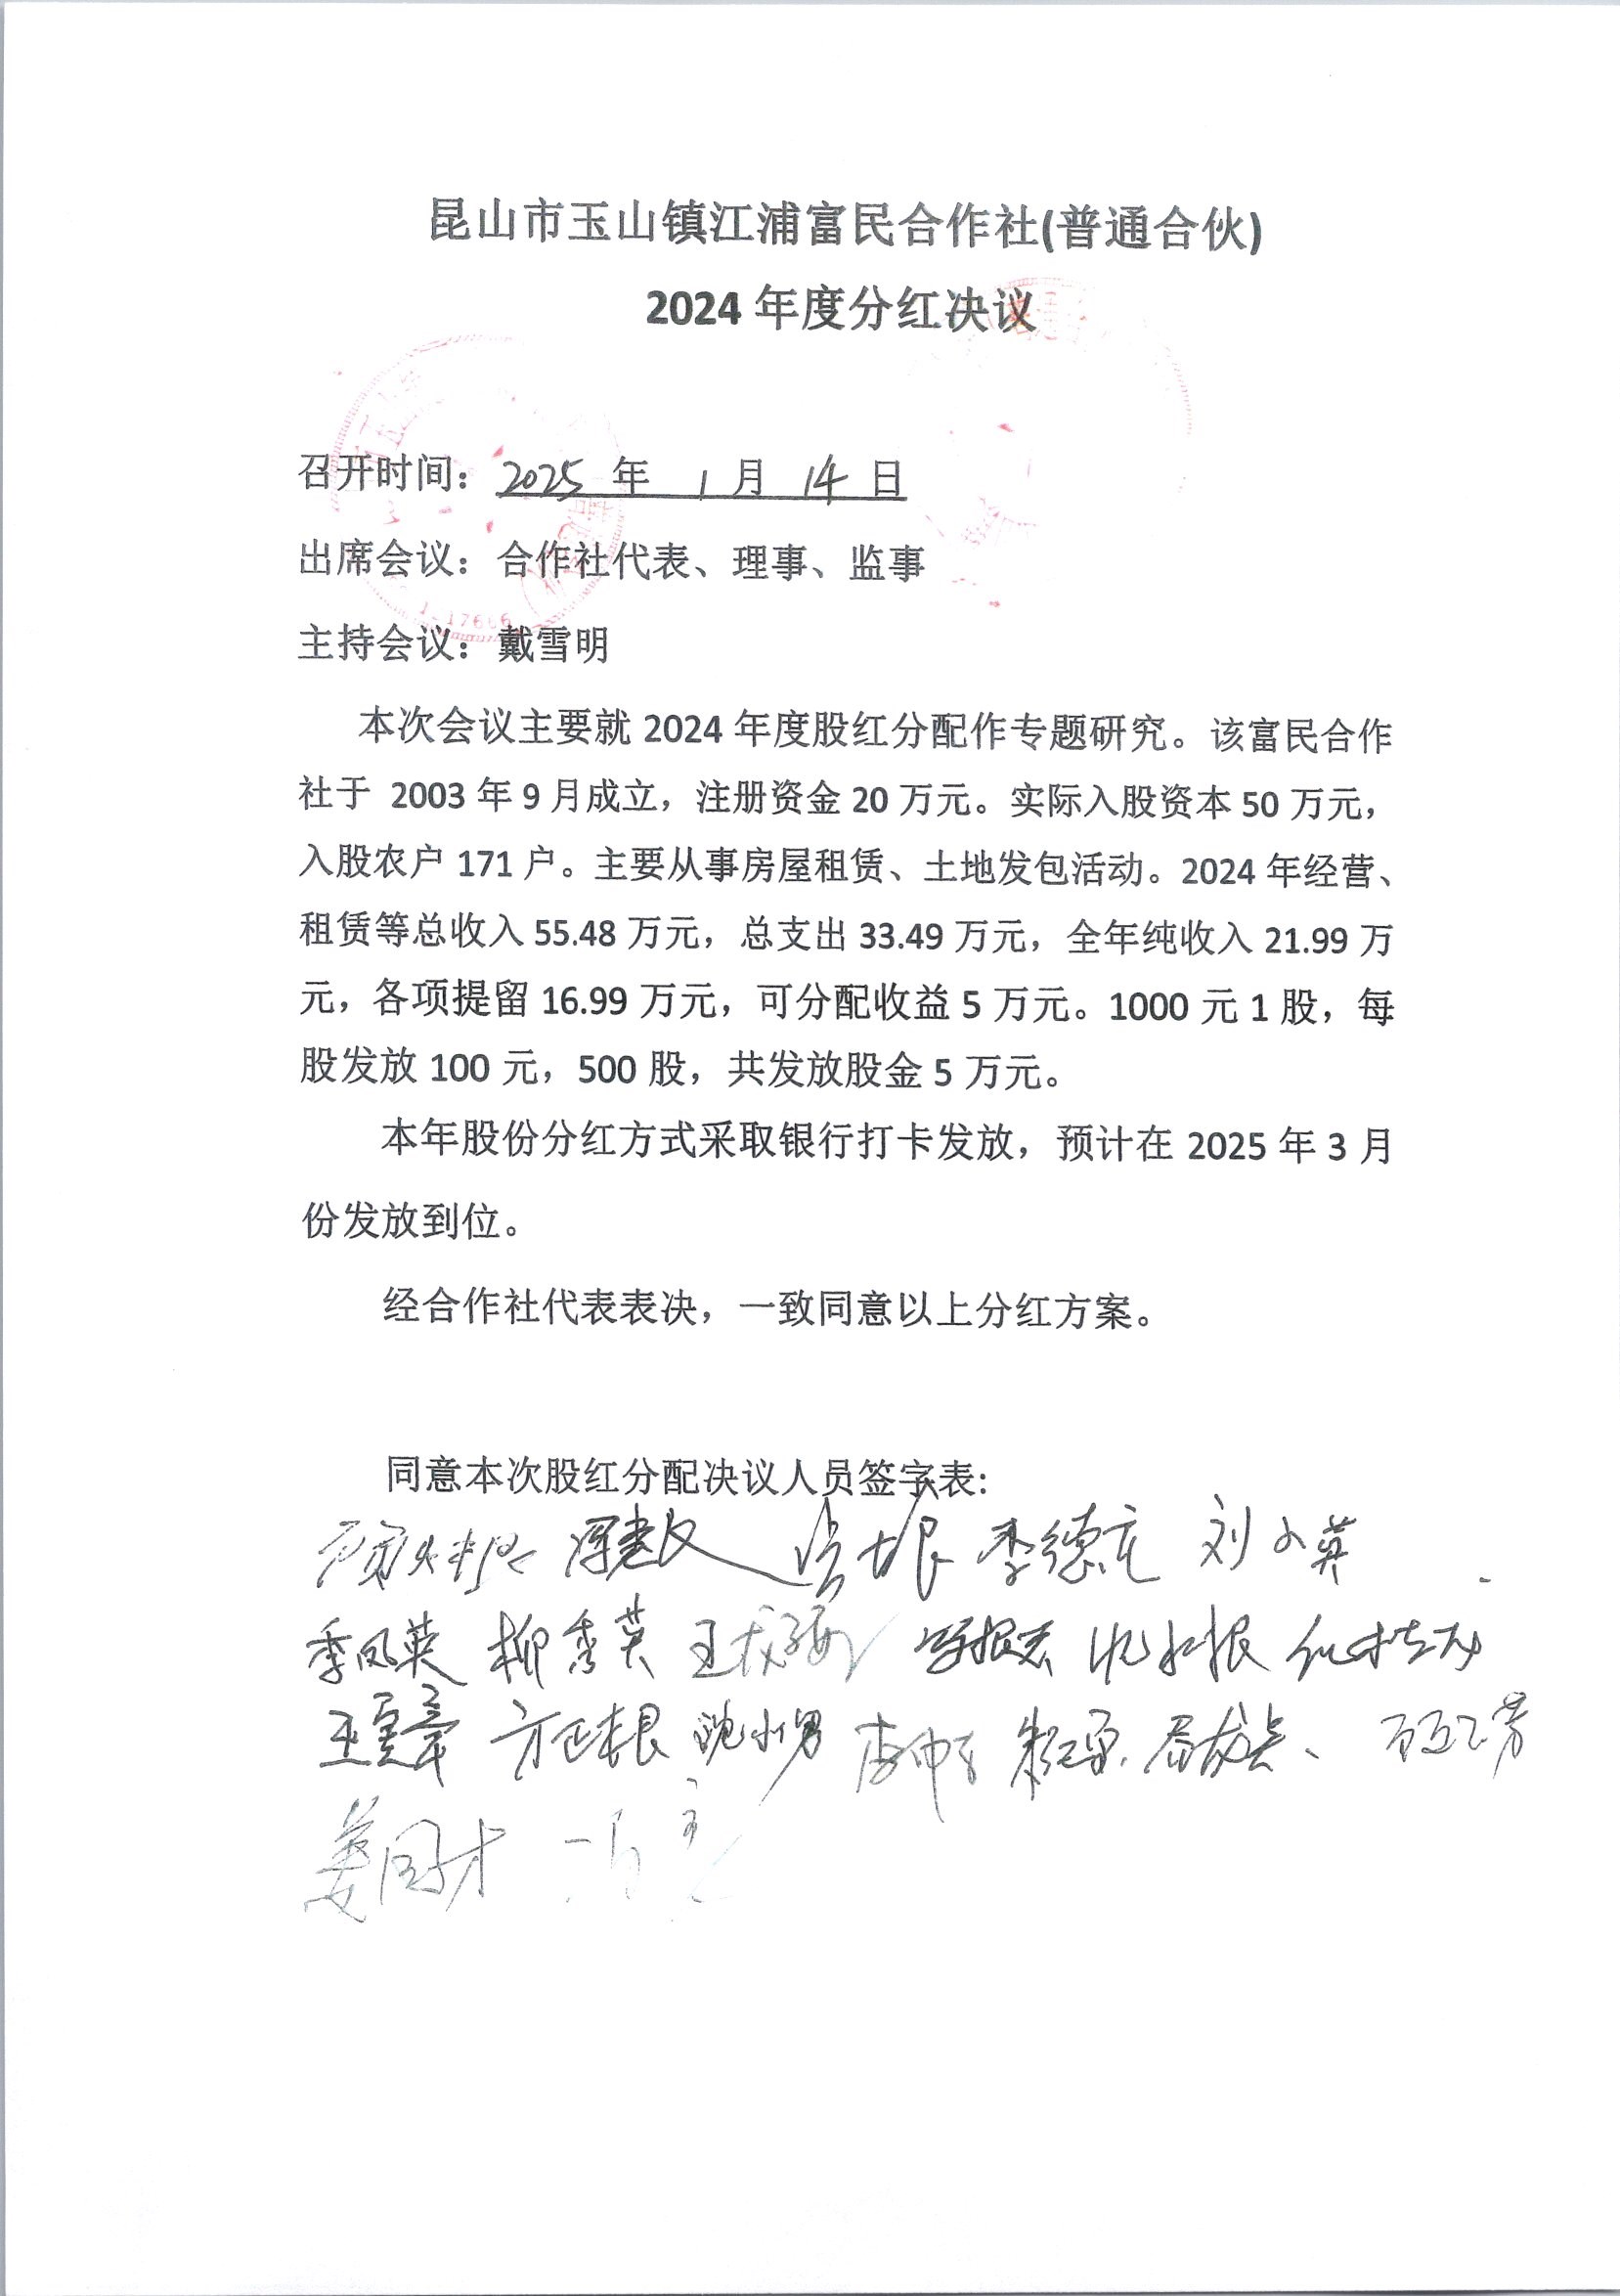 昆山市玉山镇江浦富民合作社(普通合伙)
2024 年度分红决议
召开时间：2025 年 1 月 14 日
出席会议：合作社代表、理事、监事
主持会议：戴雪明
本次会议主要就 2024 年度股红分配作专题研究。该富民合作
社于 2003 年 9 月成立，注册资金 20 万元。实际入股资本 50 万元，
入股农户 171 户。主要从事房屋租赁、土地发包活动。2024 年经营、
租赁等总收入 55.48 万元，总支出 33.49 万元，全年纯收入 21.99 万
元，各项提留 16.99 万元，可分配收益 5 万元。1000 元 1 股，每
股发放 100 元，500 股，共发放股金 5 万元。
本年股份分红方式采取银行打卡发放，预计在 2025 年 3 月
份发放到位。
经合作社代表表决，一致同意以上分红方案。
同意本次股红分配决议人员签字表:
刘小英
季凤英 柳秀英
方正根
姜国才